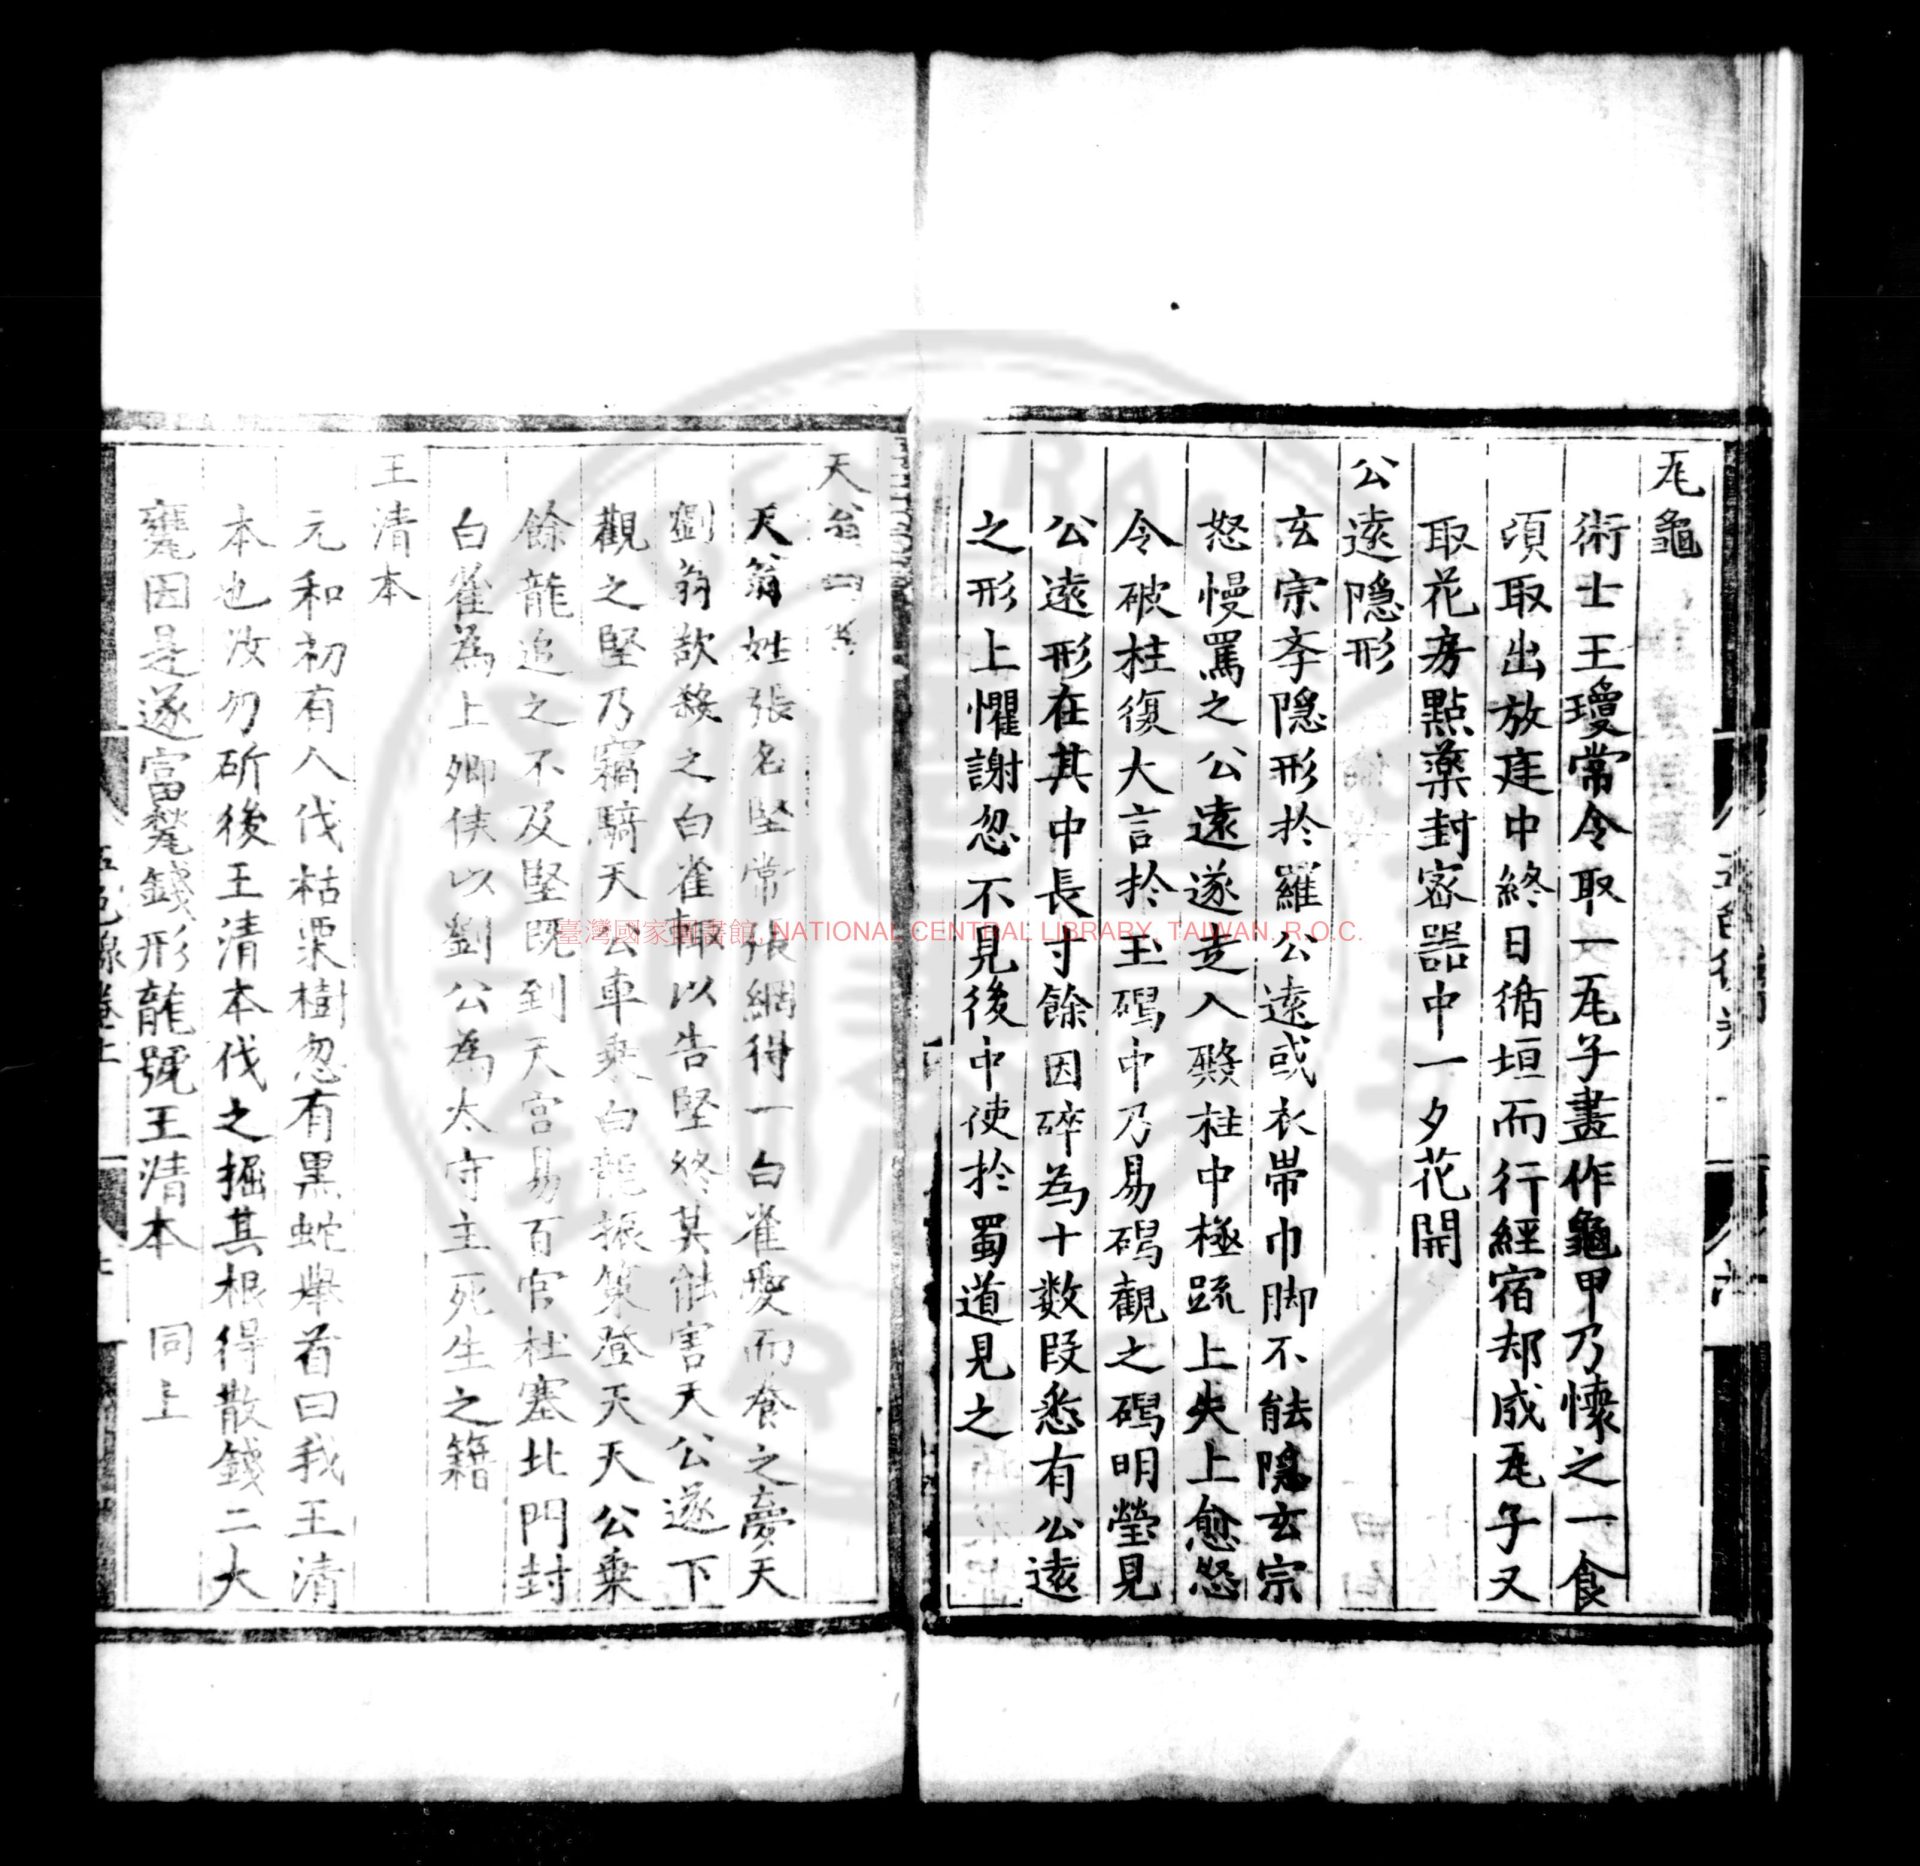 瓦龜
術士王瓊常令取一瓦子畫作龜甲乃懷之一食
頃取出放庭中終日循垣而行經宿却成瓦子又
取花房點藥封密器中一夕花開
公遠隱形
玄宗李隱形於羅公遠或衣帶巾脚不能隱玄宗
怒慢罵之公遠遂走入殿柱中極疏上失上愈怒
令破柱復大言於玉碣中乃易碣觀之碣明瑩見
公遠形在其中長寸餘因碎為十数段悉有公遠
之形上懼謝忽不見後中使於蜀道見之
天翁
天翁姓張名堅常張網得一白雀愛而養之夢天
劉翁欲殺之白雀輙以告堅終莫能害天公遂下
觀之堅乃竊騎天公車乘白龍振策登天天公乗
餘龍追之不及堅既到天宫易百官杜塞北門封
白雀為上卿侯以劉公為太守主死生之籍
王清本
元和初有人伐枯栗樹忽有黒蛇舉首曰我王清
本也汝勿斫後王清本伐之掘其根得散錢二大
甕因是遂富甃錢形龍號王清本 同上
五色線卷上
臺灣國家圖書館, NATIONAL CENTRAL LIBRARY, TAIWAN. R.O.C.